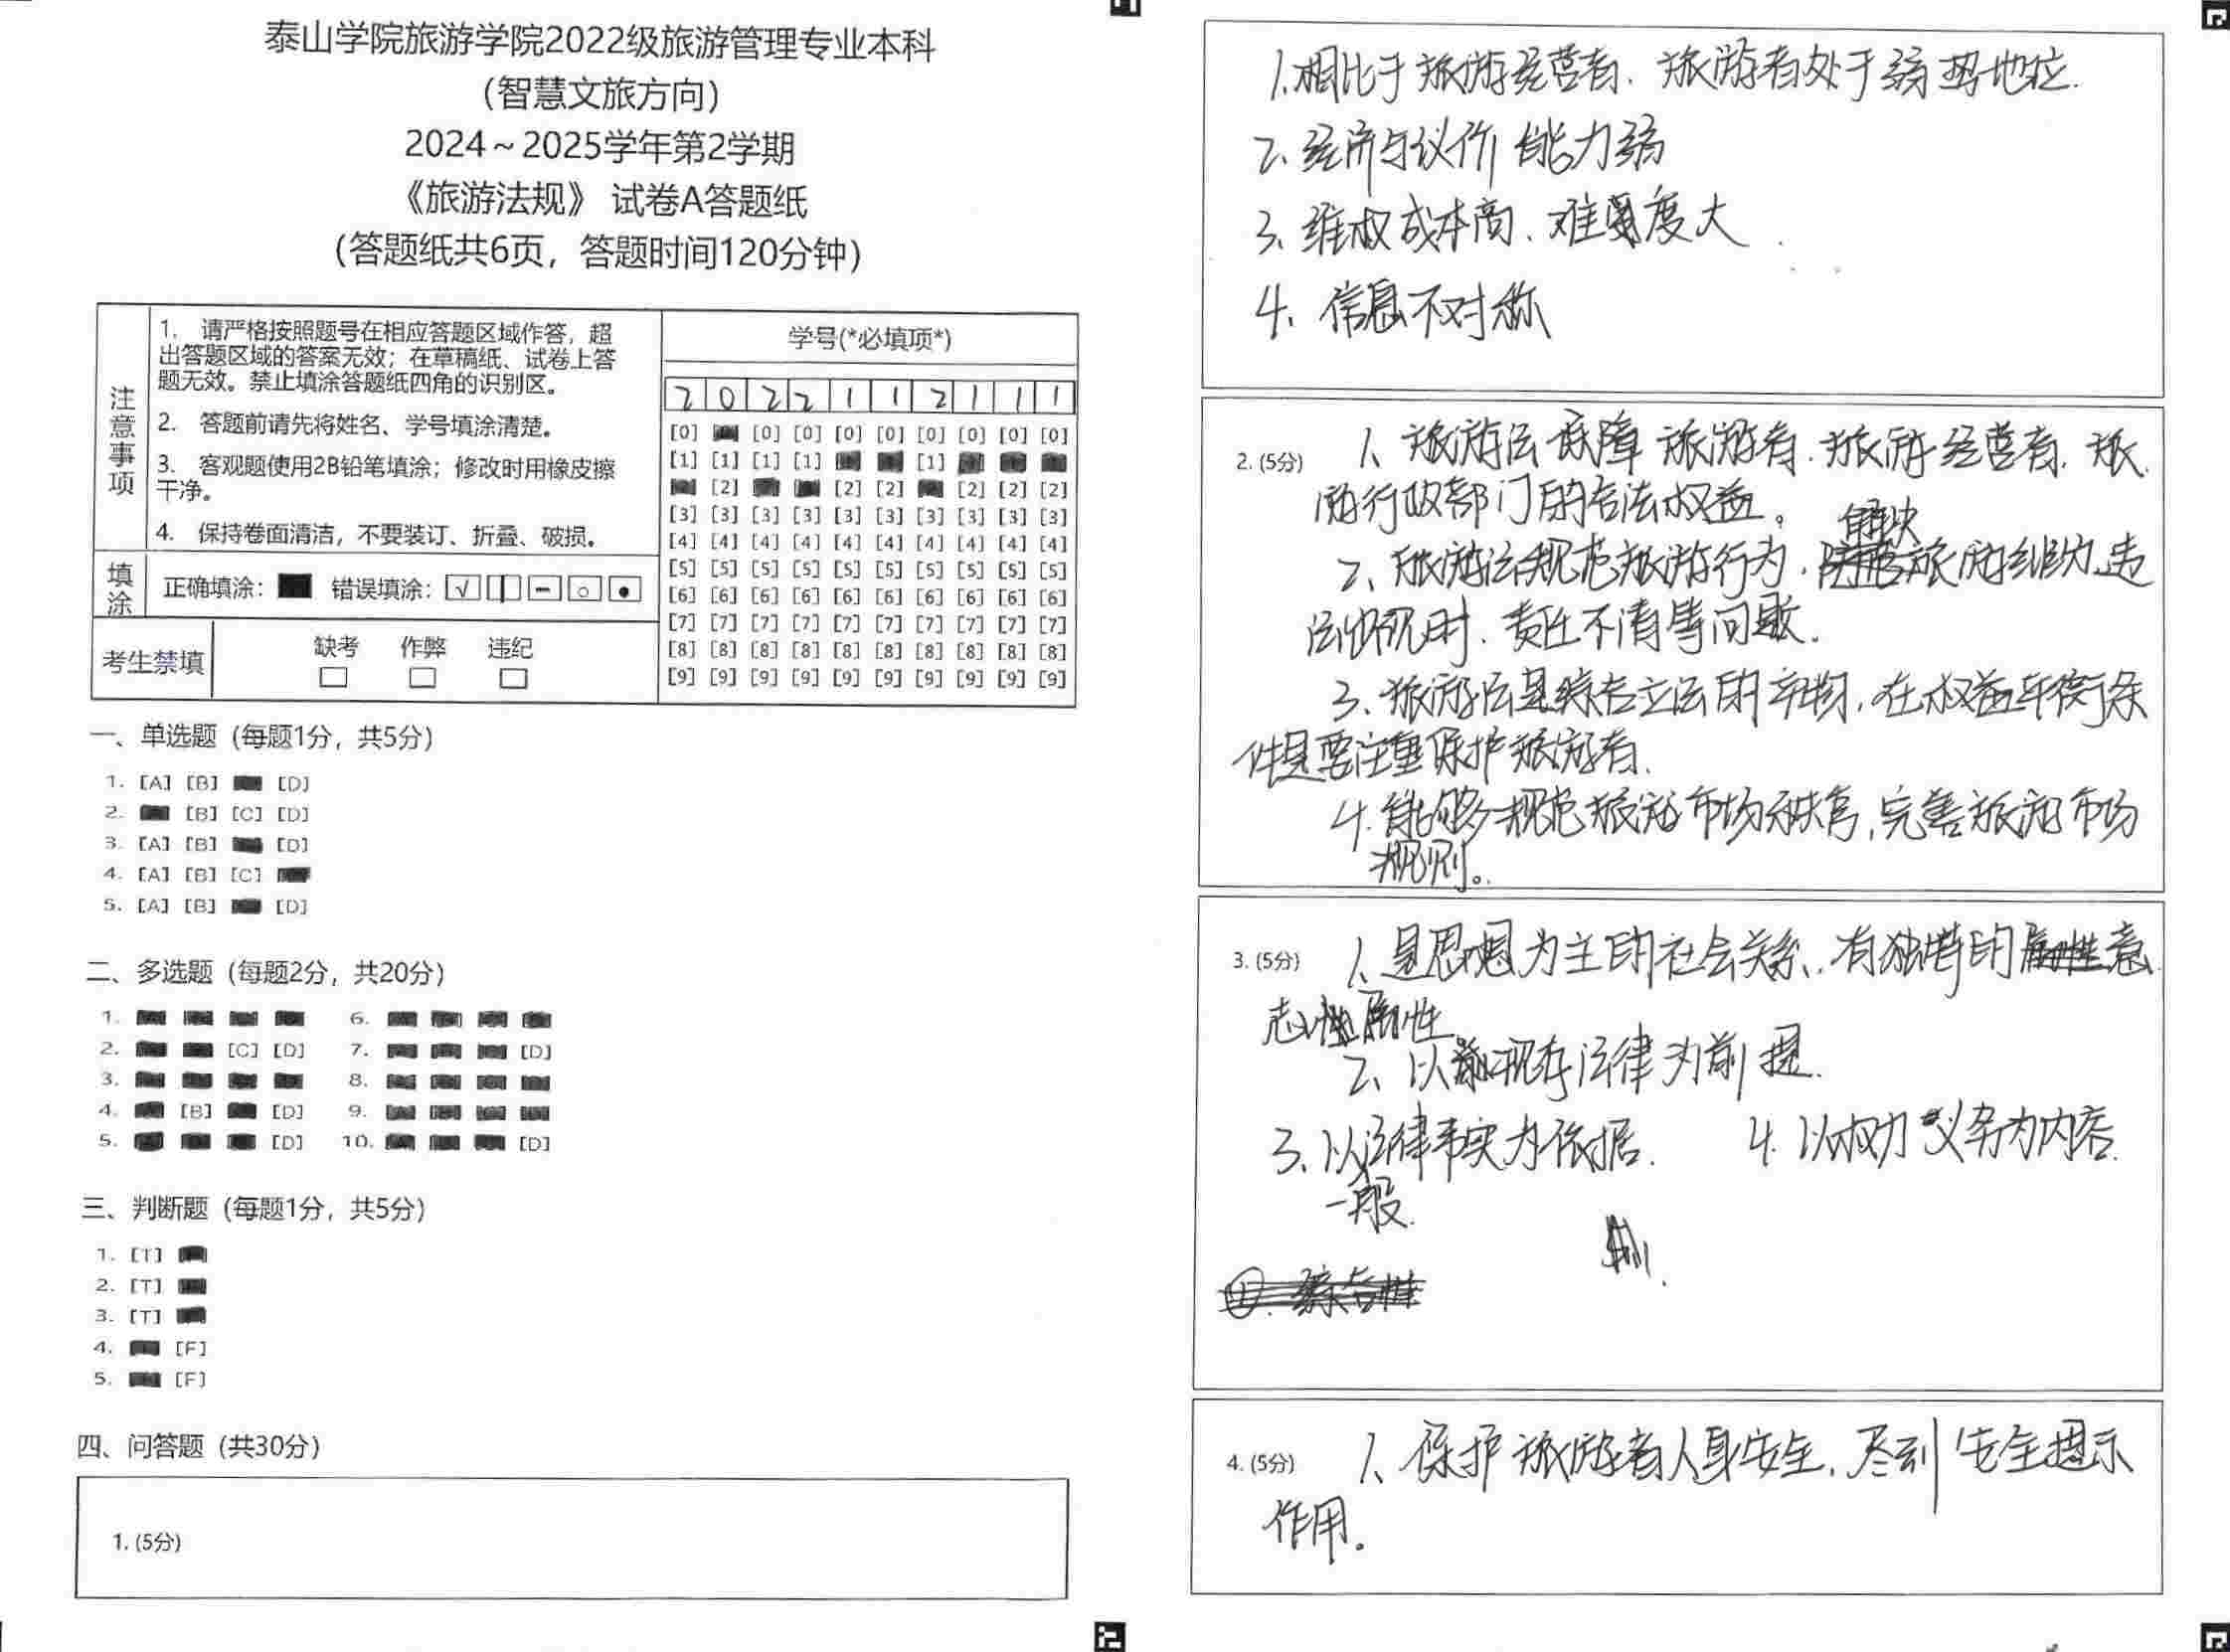 泰山学院旅游学院2022级旅游管理专业本科
（智慧文旅方向）
2024～2025学年第2学期
《旅游法规》 试卷A答题纸
（答题纸共6页，答题时间120分钟）
注意事项
1. 请严格按照题号在相应答题区域作答，超
出答题区域的答案无效；在草稿纸、试卷上答
题无效。禁止填涂答题纸四角的识别区。
2. 答题前请先将姓名、学号填涂清楚。
3. 客观题使用2B铅笔填涂；修改时用橡皮擦
干净。
4. 保持卷面清洁，不要装订、折叠、破损。
填涂 正确填涂： 错误填涂：
考生禁填 缺考 作弊 违纪
学号(*必填项*)
2 0 2 2 1 1 2 1 1 1
[0] [0] [0] [0] [0] [0] [0] [0] [0]
[1] [1] [1] [1] [1]
[2] [2] [2] [2] [2] [2]
[3] [3] [3] [3] [3] [3] [3] [3] [3] [3]
[4] [4] [4] [4] [4] [4] [4] [4] [4] [4]
[5] [5] [5] [5] [5] [5] [5] [5] [5] [5]
[6] [6] [6] [6] [6] [6] [6] [6] [6] [6]
[7] [7] [7] [7] [7] [7] [7] [7] [7] [7]
[8] [8] [8] [8] [8] [8] [8] [8] [8] [8]
[9] [9] [9] [9] [9] [9] [9] [9] [9] [9]
一、单选题（每题1分，共5分）
1. [A] [B] [D]
2. [B] [C] [D]
3. [A] [B] [D]
4. [A] [B] [C]
5. [A] [B] [D]
二、多选题（每题2分，共20分）
1. 6.
2. [C] [D] 7. [D]
3. 8.
4. [B] [D] 9.
5. [D] 10. [D]
三、判断题（每题1分，共5分）
1. [T]
2. [T]
3. [T]
4. [F]
5. [F]
四、问答题（共30分）
1. (5分)
1. 相比于旅游经营者，旅游者处于弱势地位.
2、经济与议价能力弱
3、维权成本高、难度大.
4、信息不对称
2. (5分) 1、旅游法保障旅游者、旅游经营者、旅
游行政部门的合法权益。
2、旅游法规范旅游行为，解决旅游纠纷、违
法 时、责任不清等问题.
3、旅游法是综合立法的产物，在权益平衡条
件是要注重保护旅游者.
4. 能够规范旅游市场秩序，完善旅游市场
规则。
3. (5分) 1、是思想为主的社会关系，有独特的意
志属性
2、以现存法律为前提.
3、以法律事实为依据. 4. 以权力义务为内容.
一般.
4. (5分) 1、保护旅游者人身安全，尽到安全提示
作用。